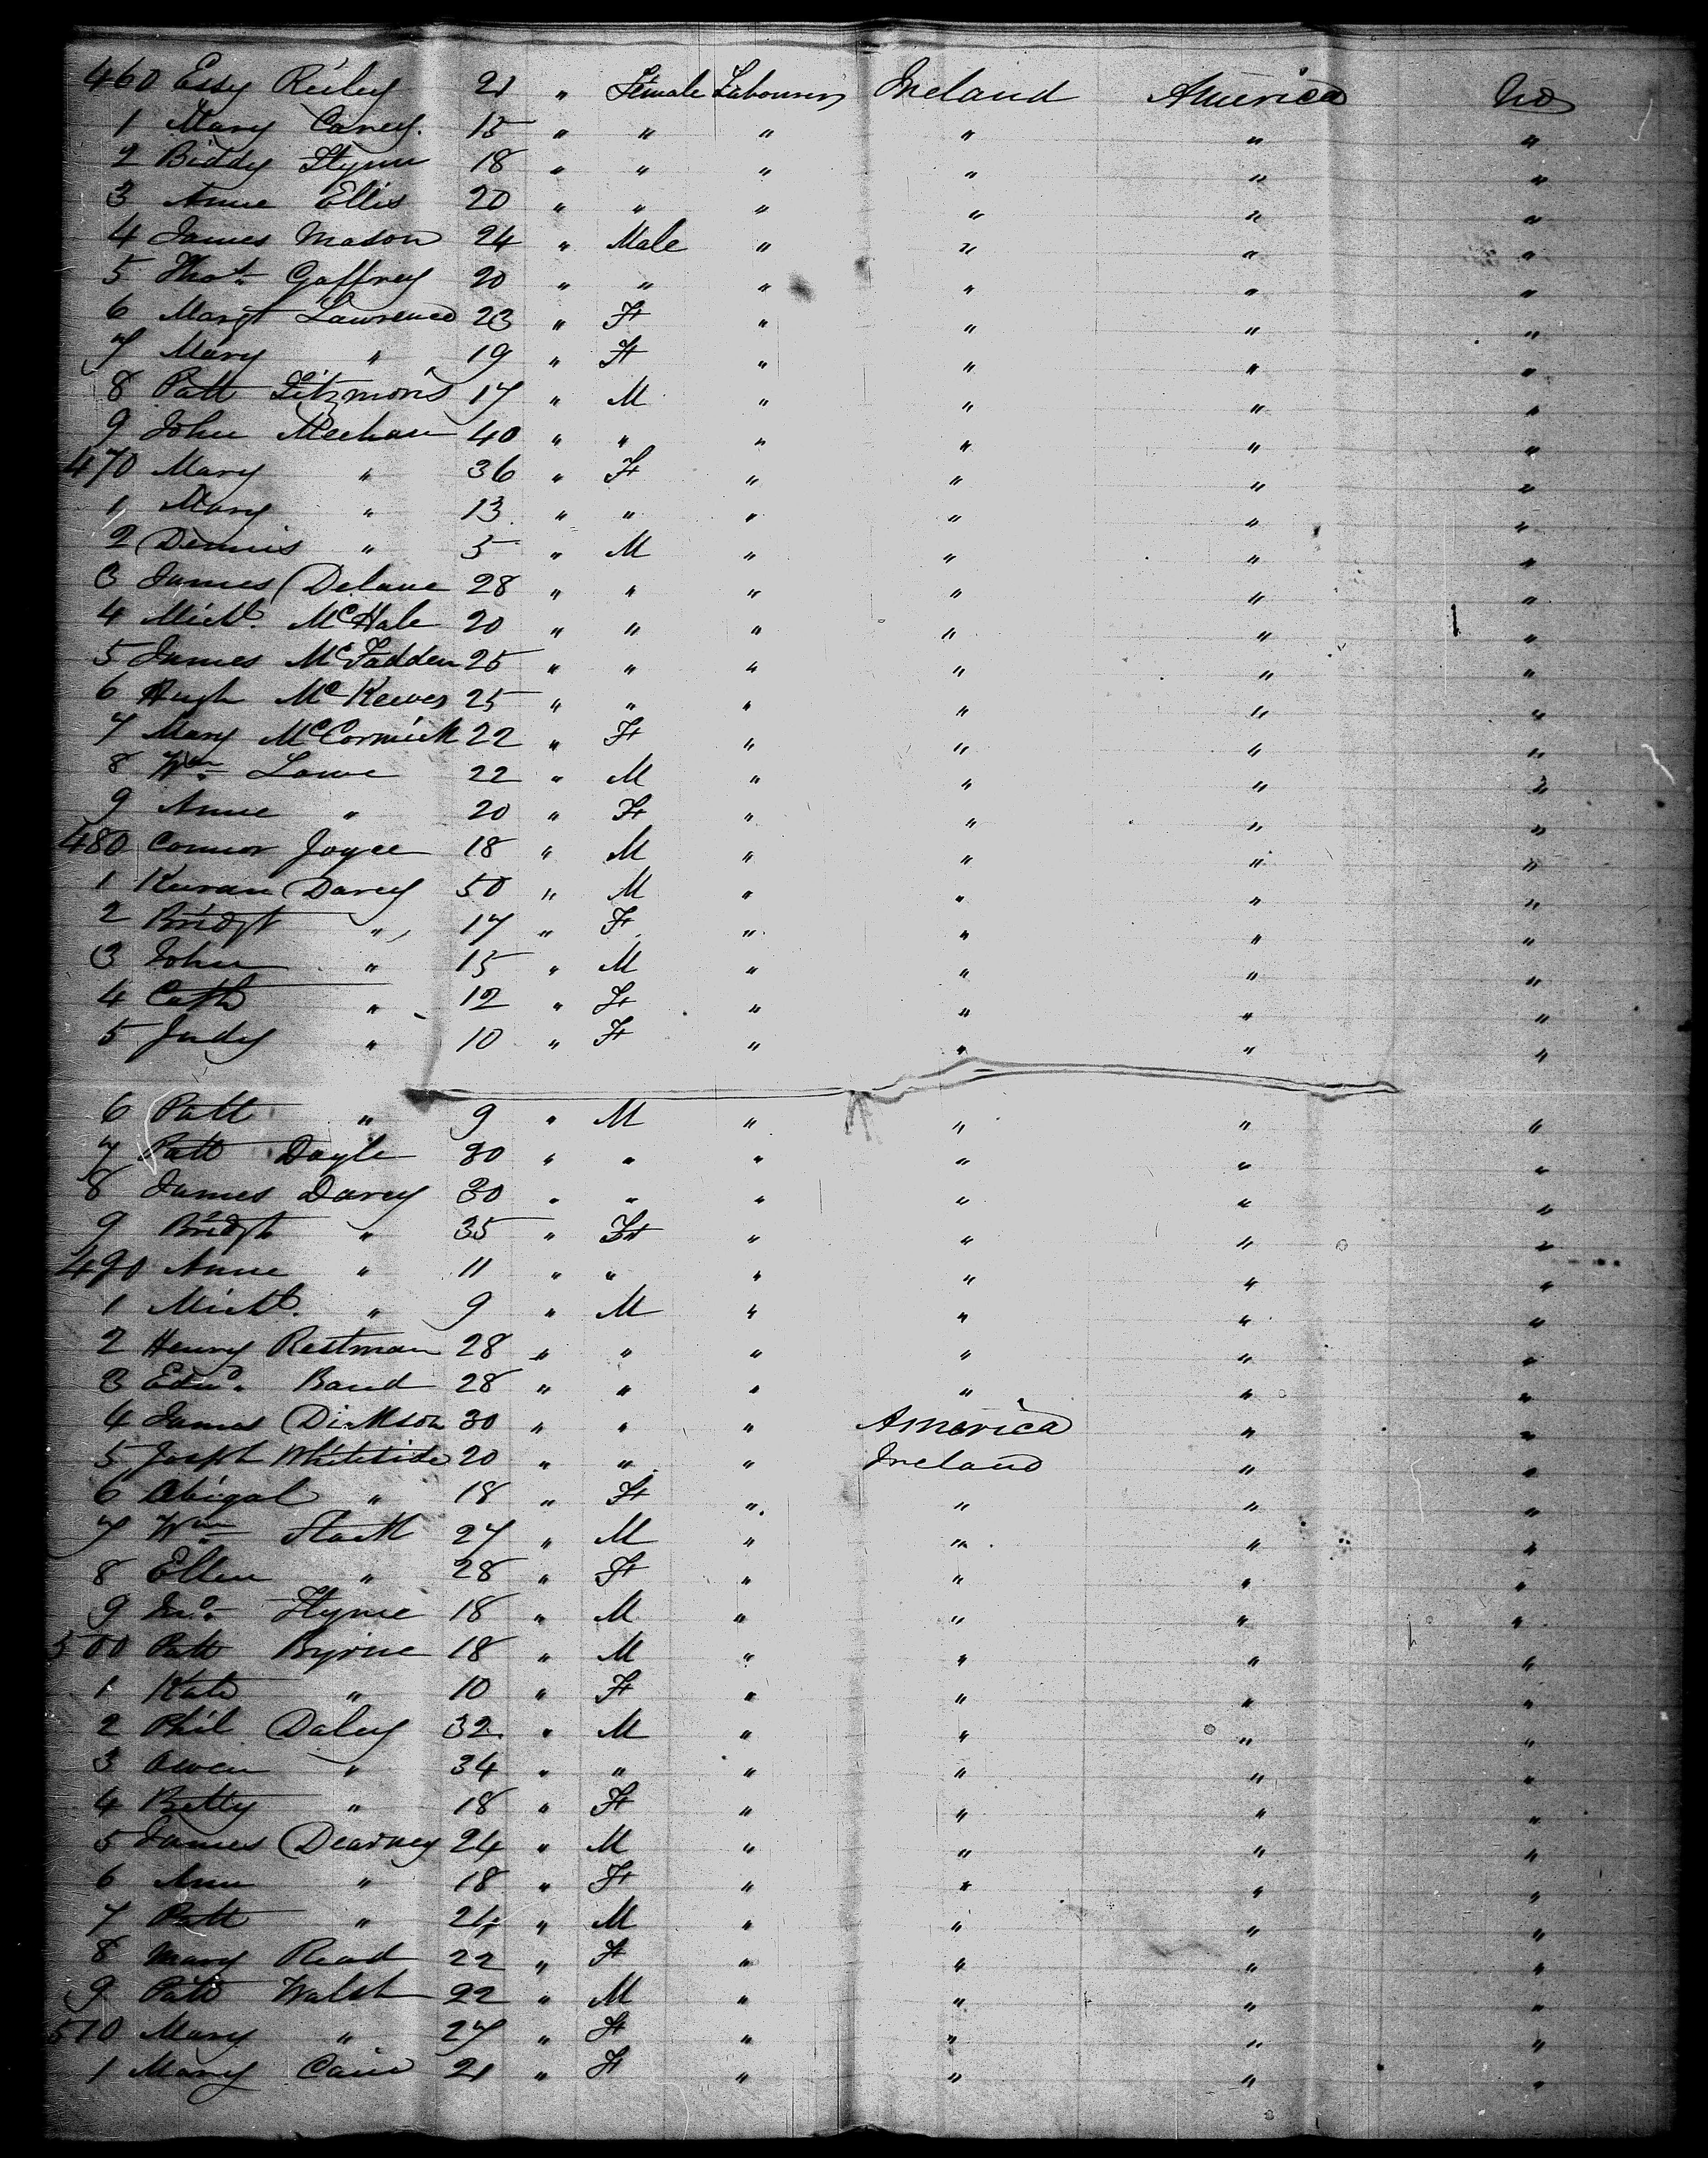 460 Essy Reiley 21 " Female Labourers Ireland America No
1 Mary Carey. 15 " " " " " "
2 Biddy Flynn 18 " " " " " "
3 Anne Ellis 20 " " " " " "
4 James Mason 24 " Male " " " "
5 Thos. Gaffney 20 " " " " " "
6 Margt Lawrence 23 " F " " " "
7 Mary " 19 " F " " " "
8 Patt Fitzmons 17 " M " " " "
9 John Meehan 40 " " " " " "
470 Mary " 36 " F " " " "
1 Mary " 13 " " " " " "
2 Dennis " 5 " M " " " "
3 James Delane 28 " " " " " "
4 Michl. McHale 20 " " " " " "
5 James McFadden 25 " " " " " "
6 Hugh McKeever 25 " " " " " "
7 Mary McCormick 22 " F " " " "
8 Wm. Lowe 22 " M " " " "
9 Anne " 20 " F " " " "
480 Connor Joyce 18 " M " " " "
1 Kieran Darcy 50 " M " " " "
2 Bridgt " 17 " F " " " "
3 John " 15 " M " " " "
4 Cath " 12 " F " " " "
5 Judy " 10 " F " " " "
6 Patt " 9 " M " " " "
7 Patt Doyle 30 " " " " " "
8 James Darcy 30 " " " " " "
9 Bridgt " 35 " F " " " "
490 Anne " 11 " " " " " "
1 Michl. " 9 " M " " " "
2 Henry Restman 28 " " " " " "
3 Edwd. Band 28 " " " " " "
4 James Dickson 30 " " " America " "
5 Joseph Whiteside 20 " " " Ireland " "
6 Abigal " 18 " F " " " "
7 Wm. Stack 27 " M " " " "
8 Ellen " 28 " F " " " "
9 Jno. Flynne 18 " M " " " "
500 Patt Byrne 18 " M " " " "
1 Kate " 10 " F " " " "
2 Phil Daley 32 " M " " " "
3 Owen " 34 " " " " " "
4 Betty " 18 " F " " " "
5 James Dearney 24 " M " " " "
6 Ann " 18 " F " " " "
7 Patt " 24 " M " " " "
8 Mary Read 22 " F " " " "
9 Patt Walsh 22 " M " " " "
510 Mary " 27 " F " " " "
1 Mary Cain 21 " F " " " "